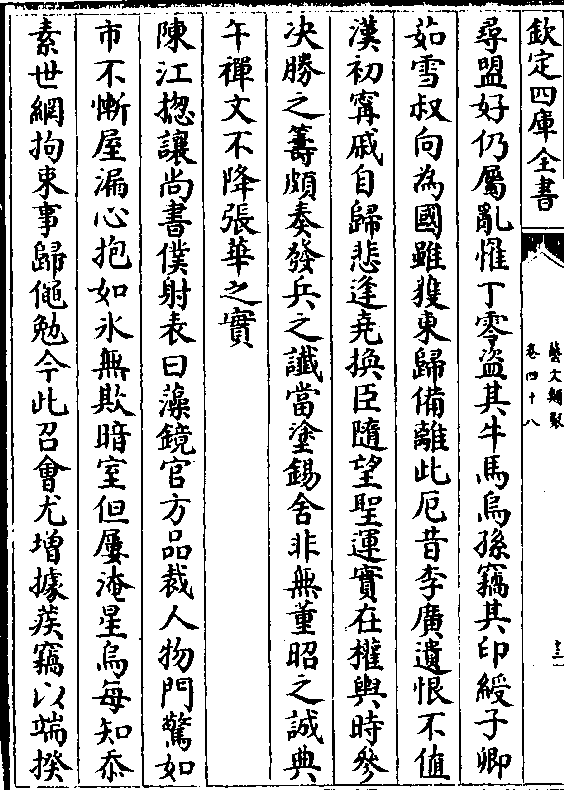 欽定四庫全書
藝文類聚
卷四十八
尋盟好仍屬亂惟丁零盜其牛馬烏孫竊其印綬子卿
茹雪叔向為國雖獲東歸備離此厄昔李廣遺恨不值
漢初甯戚自歸悲逢堯換臣隨望聖運實在權輿時參
決勝之籌頗奏發兵之讖當塗錫舍非無董昭之誠典
午禪文不降張華之實
陳江揔讓尚書僕射表曰藻鏡官方品裁人物門驚如
市不慚屋漏心抱如氷無欺暗室但屢淹星烏每知忝
素世網拘束事歸僶勉今此召會尤增據蒺竊以端揆